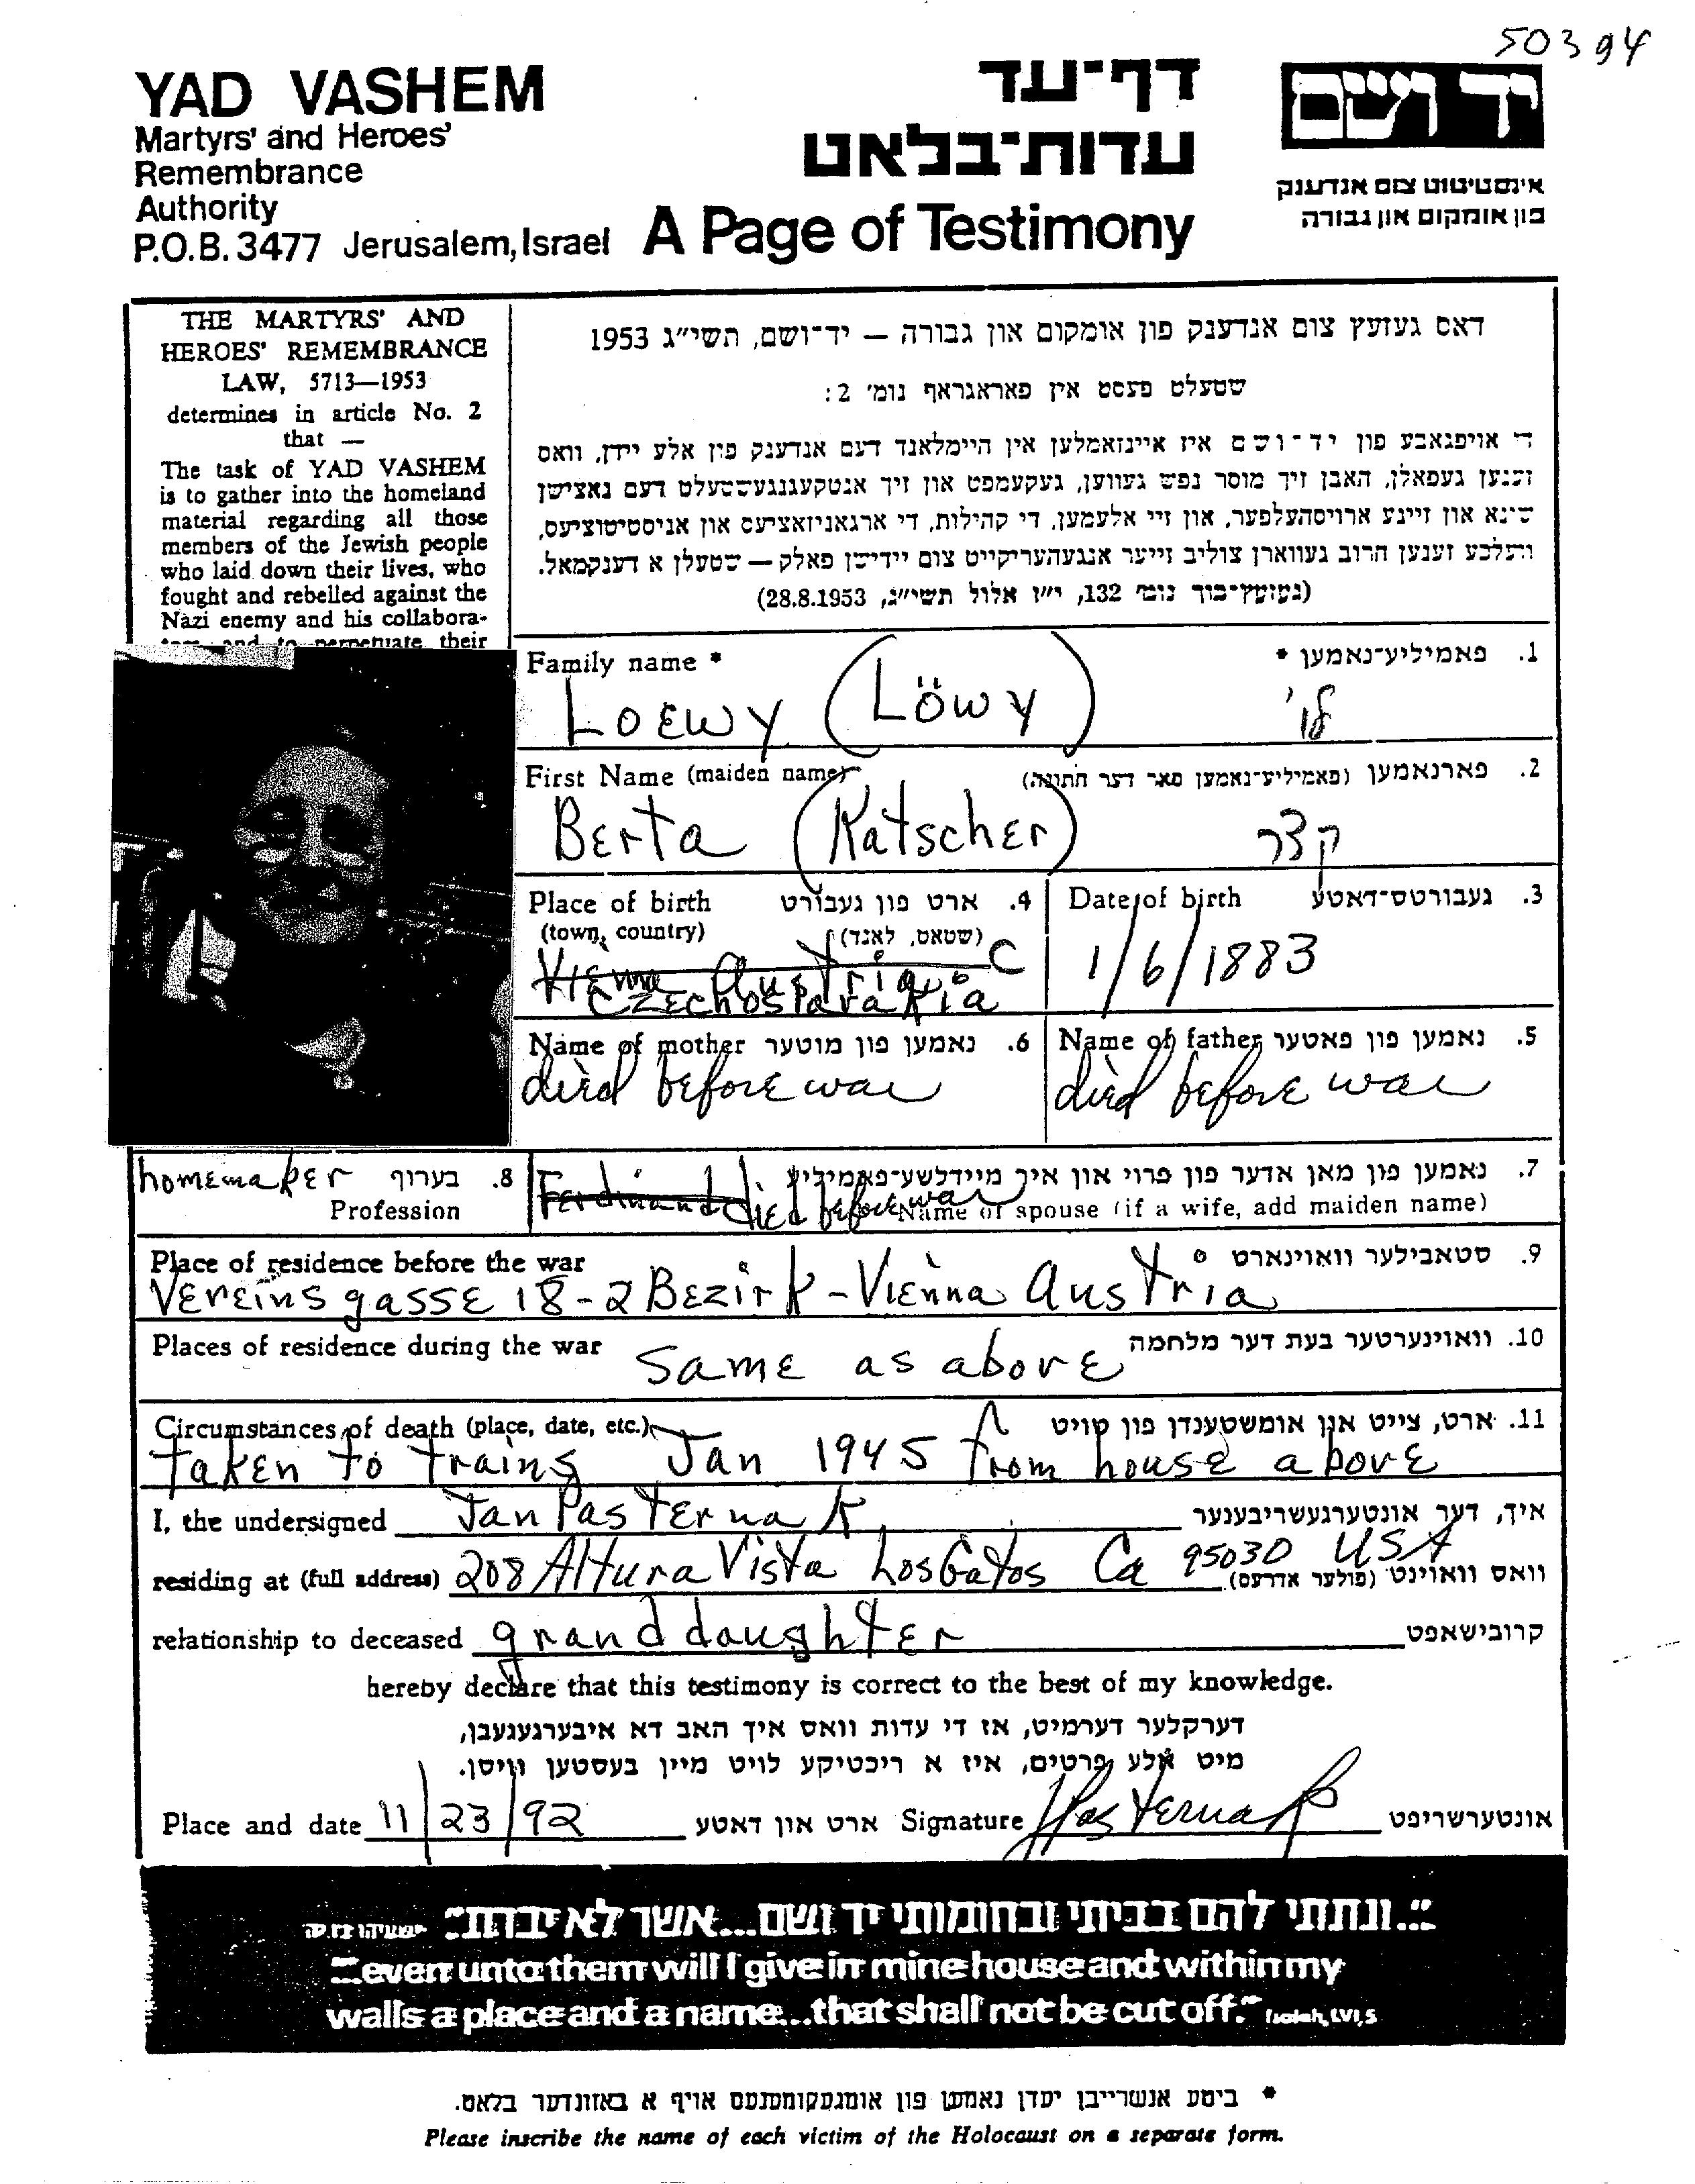 50394
YAD VASHEM
Martyrs' and Heroes'
Remembrance
Authority
P.O.B. 3477 Jerusalem, Israel
דף־עד
עדות־בלאט
A Page of Testimony
יד ושם
אינסטיטוט צום אנדענק
פון אומקום און גבורה
THE MARTYRS' AND
HEROES' REMEMBRANCE
LAW, 5713—1953
determines in article No. 2
that —
The task of YAD VASHEM
is to gather into the homeland
material regarding all those
members of the Jewish people
who laid down their lives, who
fought and rebelled against the
Nazi enemy and his collabora-
and to perpetuate their
דאס געזעץ צום אנדענק פון אומקום און גבורה — יד־ושם, תשי״ג 1953
שטעלט פעסט אין פאראגראף נומ׳ 2:
די אויפגאבע פון יד־ושם איז איינזאמלען אין היימלאנד דעם אנדענק פון אלע יידן, וואס
זענען געפאלן, האבן זיך מוסר נפש געווען, געקעמפט און זיך אנטקעגנגעשטעלט דעם נאצישן
שינא און זיינע ארויסהעלפער, און זיי אלעמען, די קהילות, די ארגאניזאציעס און אינסטיטוציעס,
וועלכע זענען חרוב געווארן צוליב זייער אנגעהעריקייט צום יידישן פאלק — שטעלן א דענקמאל.
(געזעץ־בוך נומ׳ 132, י״ז אלול תשי״ג, 28.8.1953)
Family name * 1. פאמיליע־נאמען *
Loewy (Löwy) לוי
First Name (maiden name) 2. פארנאמען (פאמיליע־נאמען פאר דער חתונה)
Berta (Katscher) קצר
Place of birth 4. ארט פון געבורט
(town, country) (שטאט, לאנד)
Vienna Austria C
Czechoslavakia
Date of birth 3. געבורטס־דאטע
1/6/1883
Name of mother 6. נאמען פון מוטער
died before war
Name of father 5. נאמען פון פאטער
died before war
homemaker 8. בערוף
Profession
7. נאמען פון מאן אדער פון פרוי און איר מיידלשע־פאמיליע
Ferdinand died before war Name of spouse (if a wife, add maiden name)
Place of residence before the war 9. סטאבילער וואוינארט
Vereins gasse 18-2 Bezirk - Vienna Austria
Places of residence during the war 10. וואוינערטער בעת דער מלחמה
Same as above
Circumstances of death (place, date, etc.) 11. ארט, צייט און אומשטענדן פון טויט
Taken to trains Jan 1945 from house above
I, the undersigned Jan Pasternak איך, דער אונטערגעשריבענער
residing at (full address) 208 Altura Vista Los Gatos Ca 95030 USA וואס וואוינט (פולער אדרעס)
relationship to deceased granddaughter קרובישאפט
hereby declare that this testimony is correct to the best of my knowledge.
דערקלער דערמיט, אז די עדות וואס איך האב דא איבערגעגעבן,
מיט אלע פרטים, איז א ריכטיקע לויט מיין בעסטען וויסן.
Place and date 11/23/92 ארט און דאטע Signature JPasternak אונטערשריפט
"...ונתתי להם בביתי ובחומותי יד ושם...אשר לא יכרת" ישעיהו נו,ה
"...even unto them will I give in mine house and within my
walls a place and a name...that shall not be cut off." Isaiah, LVI, 5
* ביטע אנשרייבן יעדן נאמען פון אומגעקומענעם אויף א באזונדער בלאט.
Please inscribe the name of each victim of the Holocaust on a separate form.